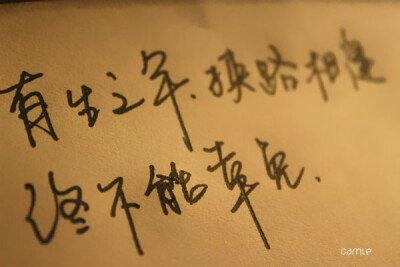 有生之年、狭路相逢
终不能幸免.
camle